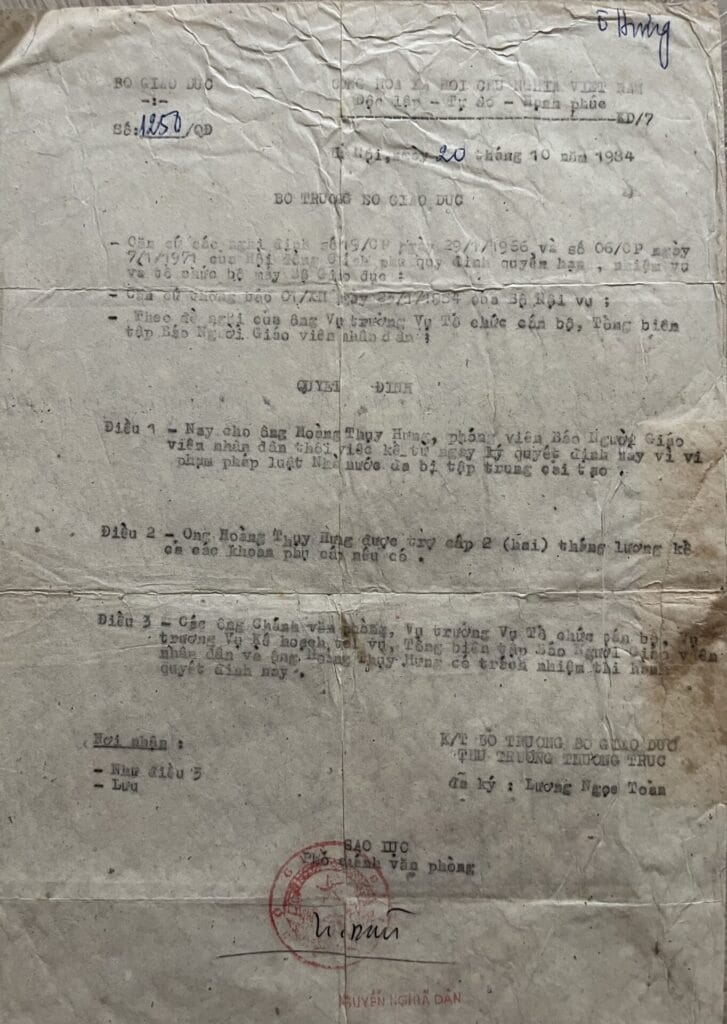 ô Hưng
BỘ GIÁO DỤC
CỘNG HOÀ XÃ HỘI CHỦ NGHĨA VIỆT NAM
-:-
Độc lập - Tự do - Hạnh phúc
Số: 1250/QĐ
KD/7
Hà Nội, ngày 20 tháng 10 năm 1984
BỘ TRƯỞNG BỘ GIÁO DỤC
- Căn cứ các nghị định số 19/CP ngày 29/1/1966 và số 06/CP ngày
7/1/1971 của Hội đồng Chính phủ quy định quyền hạn, nhiệm vụ
và tổ chức bộ máy Bộ Giáo dục ;
- Căn cứ thông báo ngày của Bộ Nội vụ ;
- Theo đề nghị của ông Vụ trưởng Vụ Tổ chức cán bộ, Tổng biên
tập Báo Người Giáo viên nhân dân ;
QUYẾT ĐỊNH
Điều 1 - Nay cho ông Hoàng Thụy Hưng, phóng viên Báo Người Giáo
viên nhân dân thôi việc kể từ ngày ký quyết định này vì vi
phạm pháp luật Nhà nước đã bị tập trung cải tạo .
Điều 2 - Ông Hoàng Thụy Hưng được trợ cấp 2 (hai) tháng lương kể
cả các khoản phụ cấp nếu có .
Điều 3 - Các ông Chánh văn phòng, Vụ trưởng Vụ Tổ chức cán bộ, Vụ
trưởng Vụ Kế hoạch tài vụ, Tổng biên tập Báo Người Giáo viên
nhân dân và ông Hoàng Thụy Hưng có trách nhiệm thi hành
quyết định này .
Nơi nhận :
K/T BỘ TRƯỞNG BỘ GIÁO DỤC
THỨ TRƯỞNG THƯỜNG TRỰC
- Như điều 3
- Lưu
đã ký : Lương Ngọc Toản
SAO LỤC
Phó chánh văn phòng
NGUYỄN NGHĨA DÂN